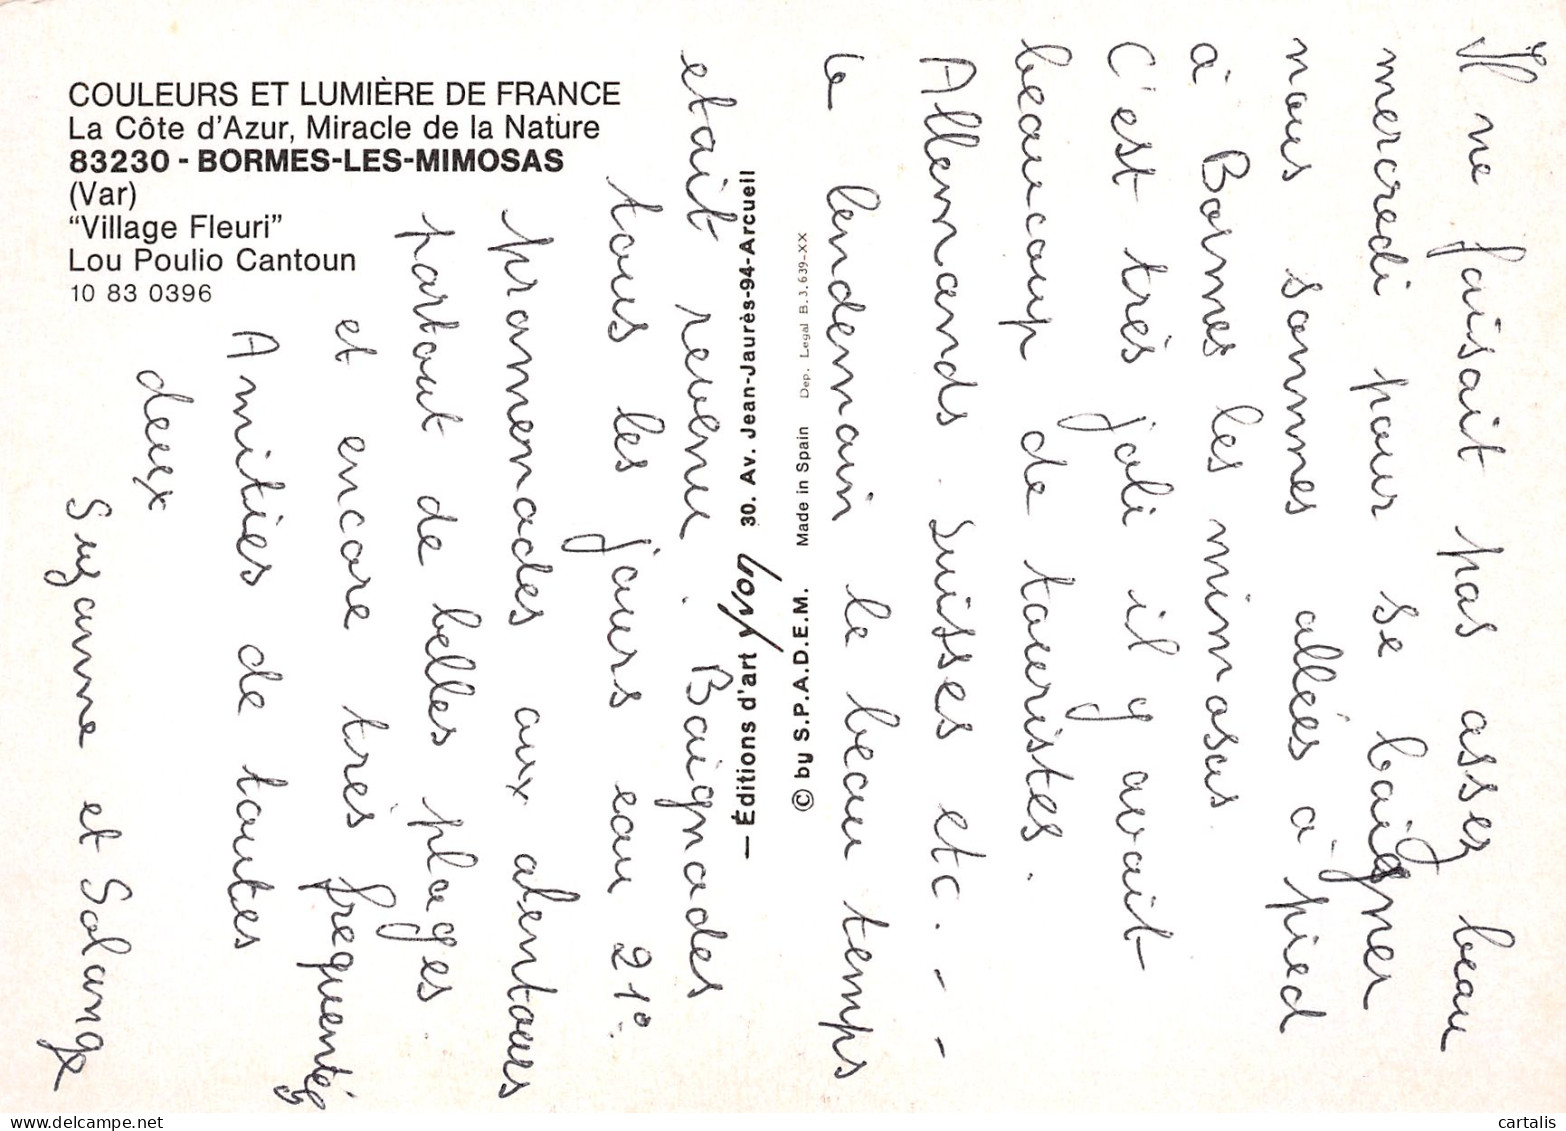 COULEURS ET LUMIÈRE DE FRANCE
La Côte d'Azur, Miracle de la Nature
83230 - BORMES-LES-MIMOSAS
(Var)
"Village Fleuri"
Lou Poulio Cantoun
10 83 0396
— Éditions d'art YVON 30. Av. Jean-Jaurès-94-Arcueil
© by S.P.A.D.E.M. Made in Spain Dep. Legal B.3.639-XX
Il ne faisait pas assez beau
mercredi pour se baigner
nous sommes allées à pied
à Bormes les mimosas
C'est très joli il y avait
beaucoup de touristes.
Allemands. Suisses etc. - -
le lendemain le beau temps
etait revenu. Baignades
tous les jours eau 21°.
promenades aux alentours
partout de belles plages.
et encore très frequentés
Amitiés de toutes
deux
Suzanne et Solange
cartalis